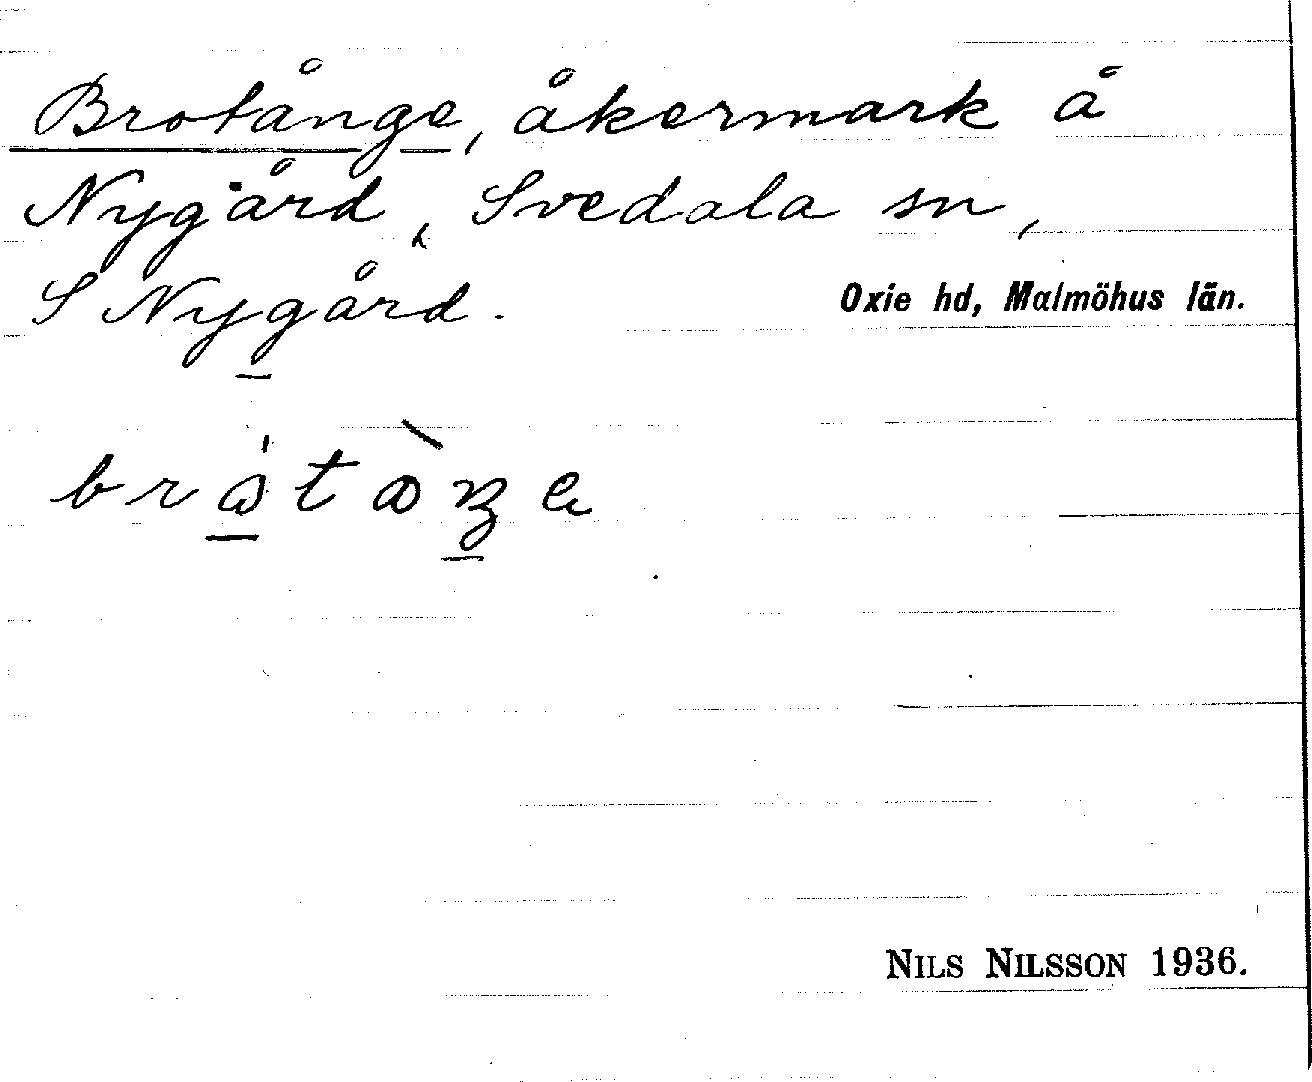 Brotånge, åkermark å
Nygård, Svedala sn,
S Nygård.
Oxie hd, Malmöhus län.
NILS NILSSON 1936.